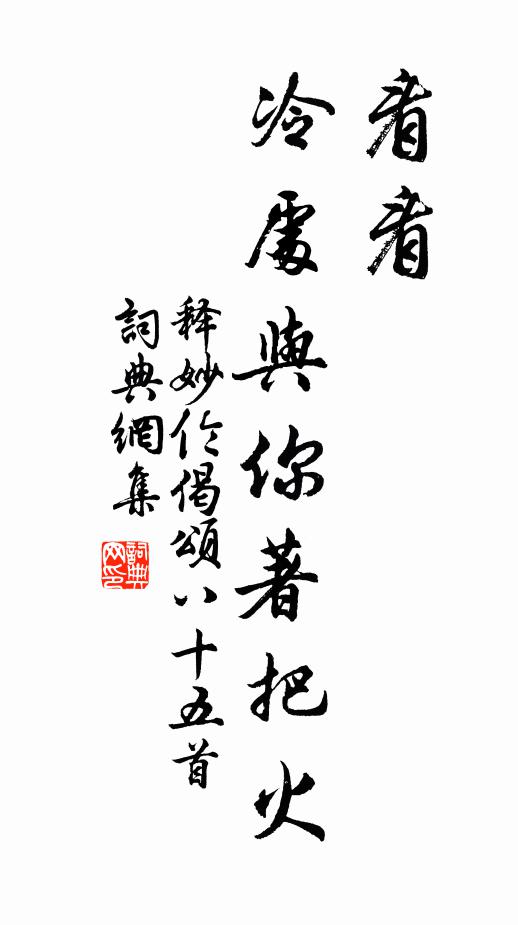 看看
冷處與你著把火
释妙伦偈頌八十五首
詞典網集
詞典网印